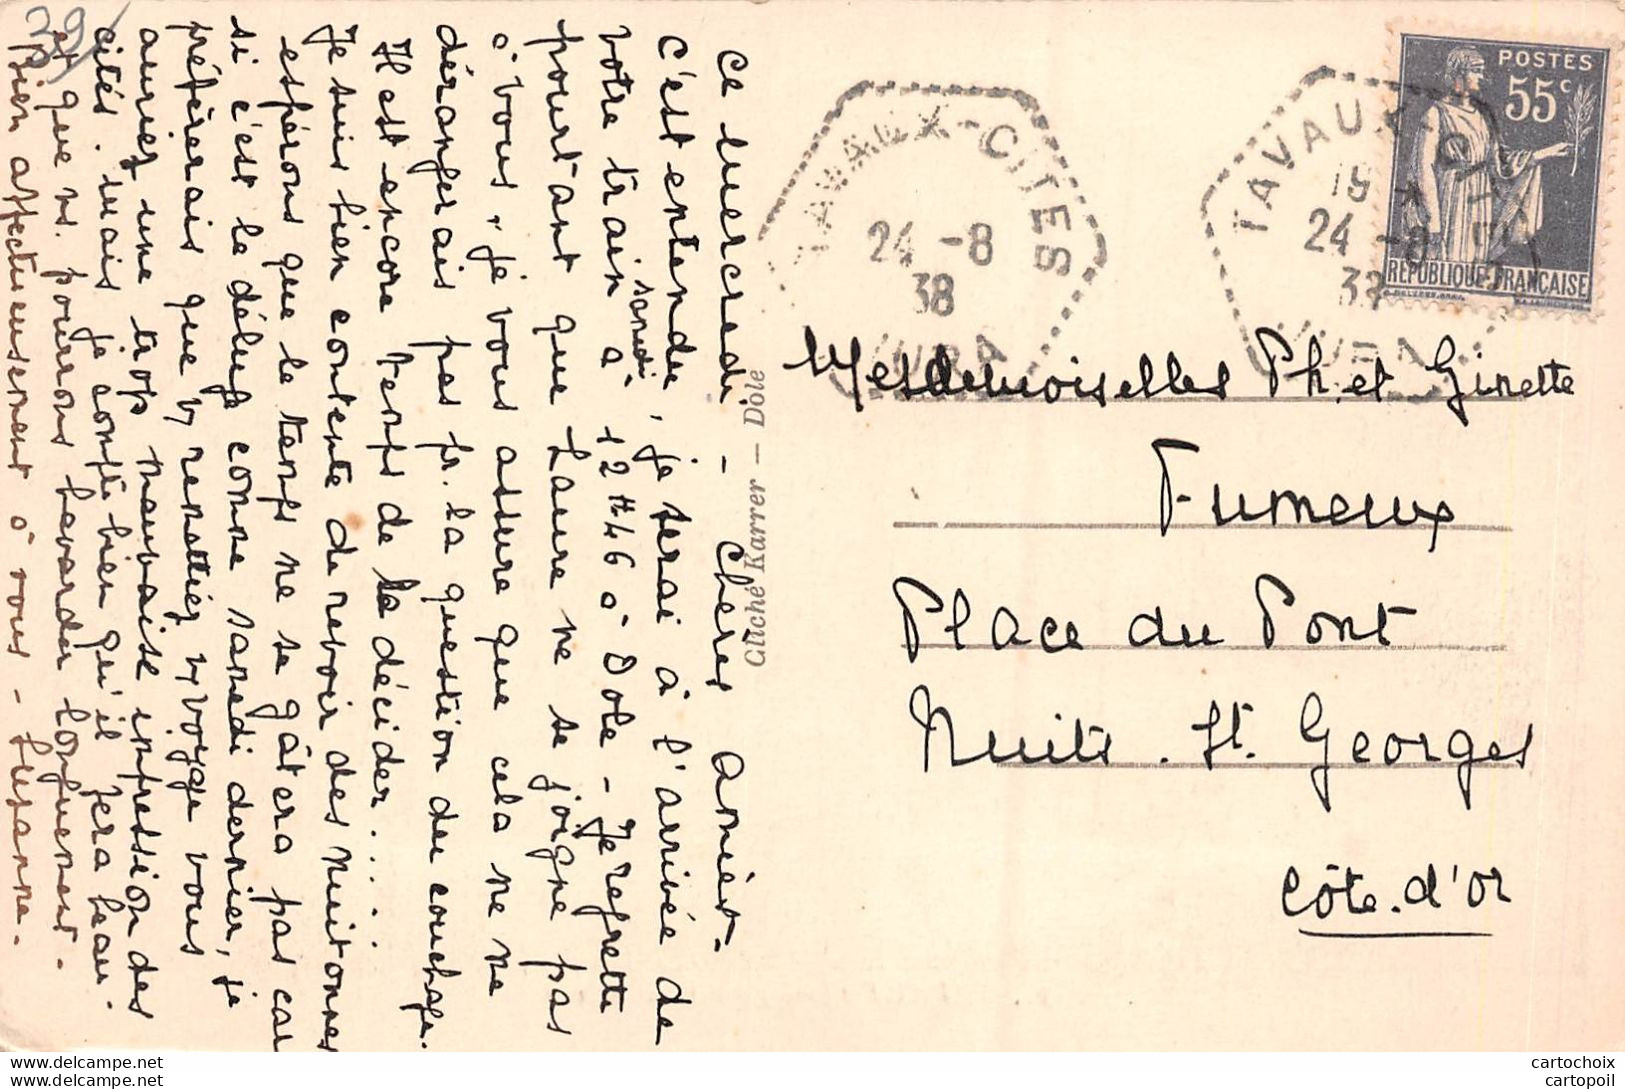 Ce Mercredi - Chères amies -
C'est entendu, je serai à l'arrivée de
votre train à samedi 12H46 à Dole - Je regrette
pourtant que Laure ne se joigne pas
à vous, je vous assure que cela ne me
dérangerais pas pr. la question du couchage.
Il est encore temps de la décider.....
Je suis bien contente de revoir des nuitonnes
espérons que le temps ne se gâtera pas car
si c'est le déluge comme samedi dernier, je
préfèrerais que v/ remettiez v/ voyage vous
auriez une trop mauvaise impression des
cités. mais je compte bien qu'il fera beau.
et que ns. pourrons bavarder longuement.
Bien affectueusement à vous - Suzanne.
Cliché Karrer — Dôle
TAVAUX-CITES
24 -8
38
JURA
TAVAUX-CITES
19 *
24 -8
38
JURA
POSTES
55c
REPUBLIQUE-FRANÇAISE
Mesdemoiselles Ph. et Ginette
Fumeux
Place du Pont
Nuits. St. Georges
Côte. d'or
cartochoix
cartopoil